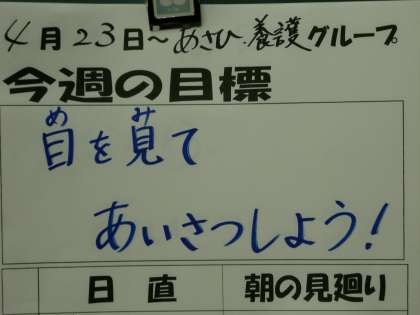 4月23日～あさひ・養護グループ
今週の目標
め み
目を見て
あいさつしよう!
日直 朝の見廻り